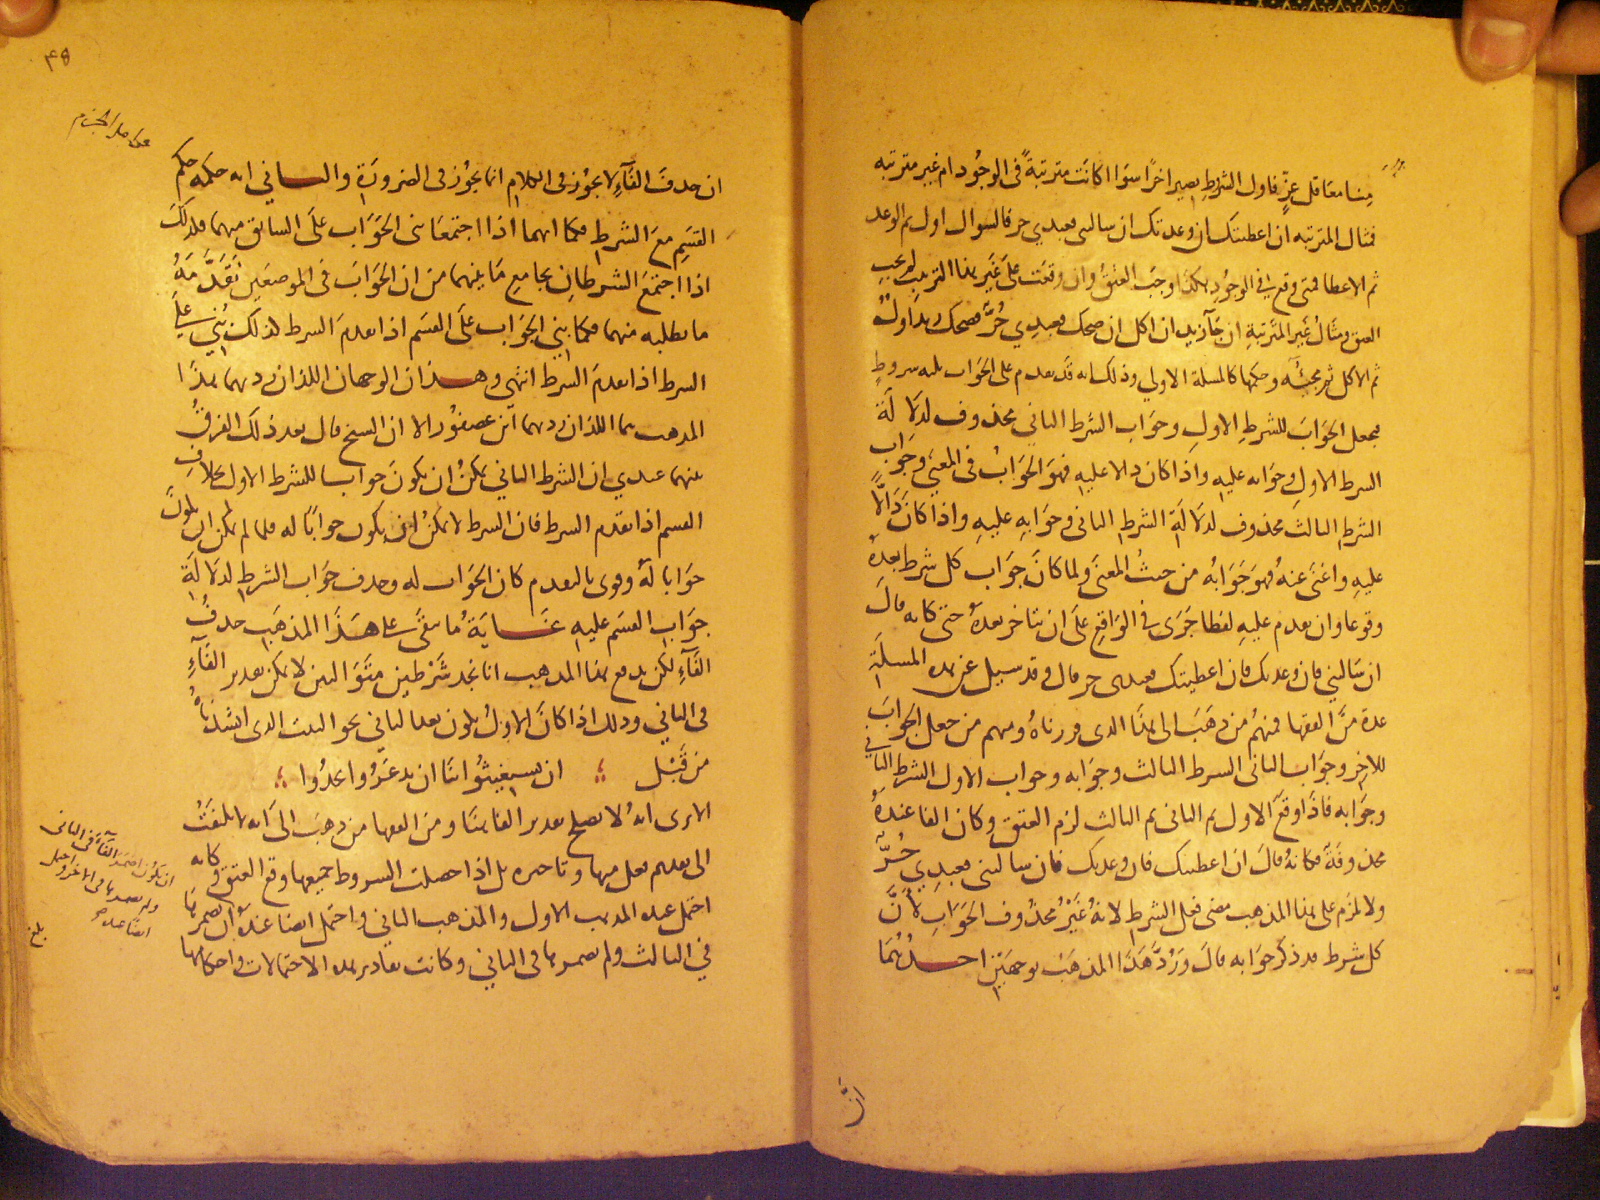 منا معاقل عز فاول الشرط يصير اخرا سوا اكانت مترتبة فى الوجود ام غير مترتبه
فمثال المترتبه ان اعطيتك ان وعدتك ان سالتنى فعبدي حر فالسوال اول ثم الوعد
ثم الاعطا فمتى وقع في الوجود هكذا وجب العتق وان وقعت على غير هذا الترتيب لم يجب
العتق ومثال غير المترتبة ان جآ زيد ان اكل ان ضحك فعبدي حر فضحك زيد اول
ثم الاكل ثم مجيئه وحكمها كالمسلة الاولي وذلك انه قد تقدم على الجواب ثلثه شروط
فجعل الجواب للشرط الاول وجواب الشرط الثانى محذوف لدلالة
الشرط الاول وجوابه عليه واذا كان دالا عليه فهو الجواب في المعني وجواب
الشرط الثالث محذوف لدلالة الشرط الثانى وجوابه عليه واذا كان دالا
عليه واغنى عنه فهو جوابه من حيث المعنى ولما كان جواب كل شرط بعده
وقوعا وان تقدم عليه لفظا جرى في الواقع على ان يتاخر بعده حتى كانه قال
ان سالتني فان وعدتك فان اعطيتك فعبدى حر قال وقد سيل عن هذه المسلة
عدة من الفقها فمنهم من ذهب الى هذا الذى قررناه ومنهم من جعل الجواب
للاخر وجواب الثانى الشرط الثالث وجوابه وجواب الاول الشرط الثاني
وجوابه فاذا وقع الاول ثم الثانى ثم الثالث لزم العتق وكان الفا عنده
محذوفة فكانه قال ان اعطيتك فان وعدتك فان سالتنى فعبدي حر
ولا يلزم على هذا المذهب مضى فعل الشرط لانه غير محذوف الجواب لان
كل شرط قد ذكر جوابه قال ورد هذا المذهب بوجهين احدهما
ان
۴۵
ان حذف الفآء لا يجوز فى الكلام انما يجوز فى الضرورة والثانى انه حكمه حكم
القسم مع الشرط فكما انهما اذا اجتمعا بنى الجواب على السابق منهما فكذلك
اذا اجتمع الشرطان بجامع ما بينهما من ان الجواب فى الموضعين تقدمه
ما يطلبه منهما فكما بني الجواب على القسم اذا تقدم الشرط لذلك بني على
الشرط اذا تقدم الشرط انتهى وهذان الوجهان اللذان رد بهما هذا
المذهب هما اللذان رد بهما ابن عصفور الا ان الشيخ قال بعد ذلك الفرق
بينهما عندي ان الشرط الثاني يمكن ان يكون جوابا للشرط الاول بخلاف
القسم اذا تقدم الشرط فان الشرط لا يمكن ان يكون جوابا له فلما لم يمكن ان يكون
جوابا له وقوى بالتقدم كان الجواب له وحذف جواب الشرط لدلالة
جواب القسم عليه غاية ما يبقى على هذا المذهب حذف
الفآء لكن يدفع هذا المذهب انا نجد شرطين متواليين لا يمكن تقدير الفآء
فى الثاني وذلك اذا كان الاول يكون بعد الثاني نحو البيت الذى انشدناه
من قبل ان تستغيثوا بنا ان تدعروا تجدوا
الا ترى انه لا يصلح تقدير الفا هنا ومن الفقها من ذهب الى انه لا يلتفت
الى تقديم فعل منها وتاخيره بل اذا حصلت الشروط جميعها وقع العتق وكانه
احتمل عنده المذهب الاول والمذهب الثانى واحتمل ايضا عنده ان يضمرها
في الثالث ولم يضمرها فى الثاني وكانت تقادير هذه الاحتمالات واحكامها
ان يكون اضمر الفآء فى الثانى
ولم يضمرها فى الاخر واحتمل
ايضا عنده
بلغ